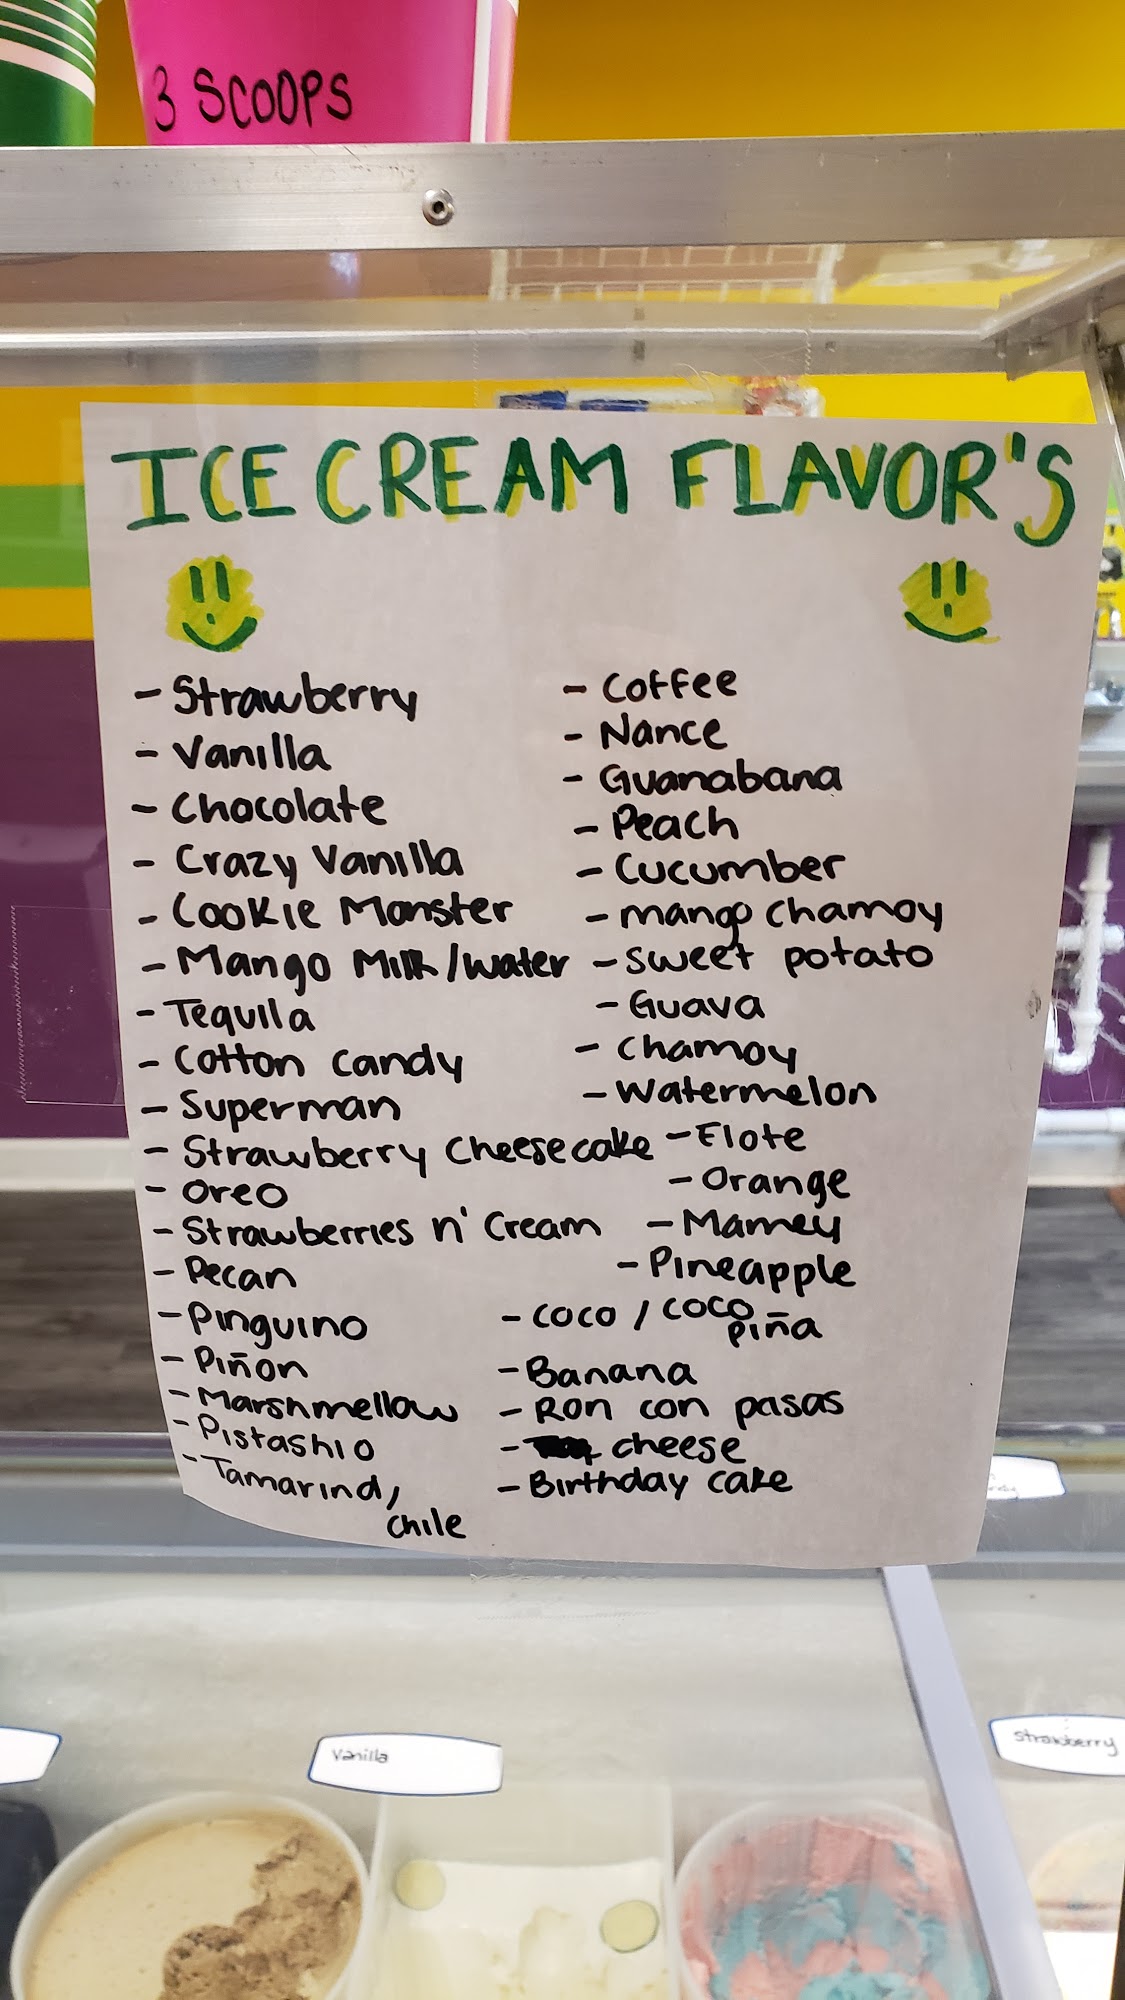 3 SCOOPS
ICE CREAM FLAVOR'S
- Strawberry
- Vanilla
- Chocolate
- Crazy Vanilla
- Cookie Monster
- Mango Milk/water
- Tequila
- Cotton candy
- Superman
- Strawberry Cheesecake
- Oreo
- Strawberries n' Cream
- Pecan
- Pinguino
- Piñon
- Marshmellow
- Pistashio
- Tamarind,
chile
- Coffee
- Nance
- Guanabana
- Peach
- Cucumber
- mango chamoy
- sweet potato
- Guava
- chamoy
- Watermelon
- Elote
- Orange
- Mamey
- Pineapple
- coco / coco
piña
- Banana
- Ron con pasas
- cheese
- Birthday cake
Vanilla
Strawberry